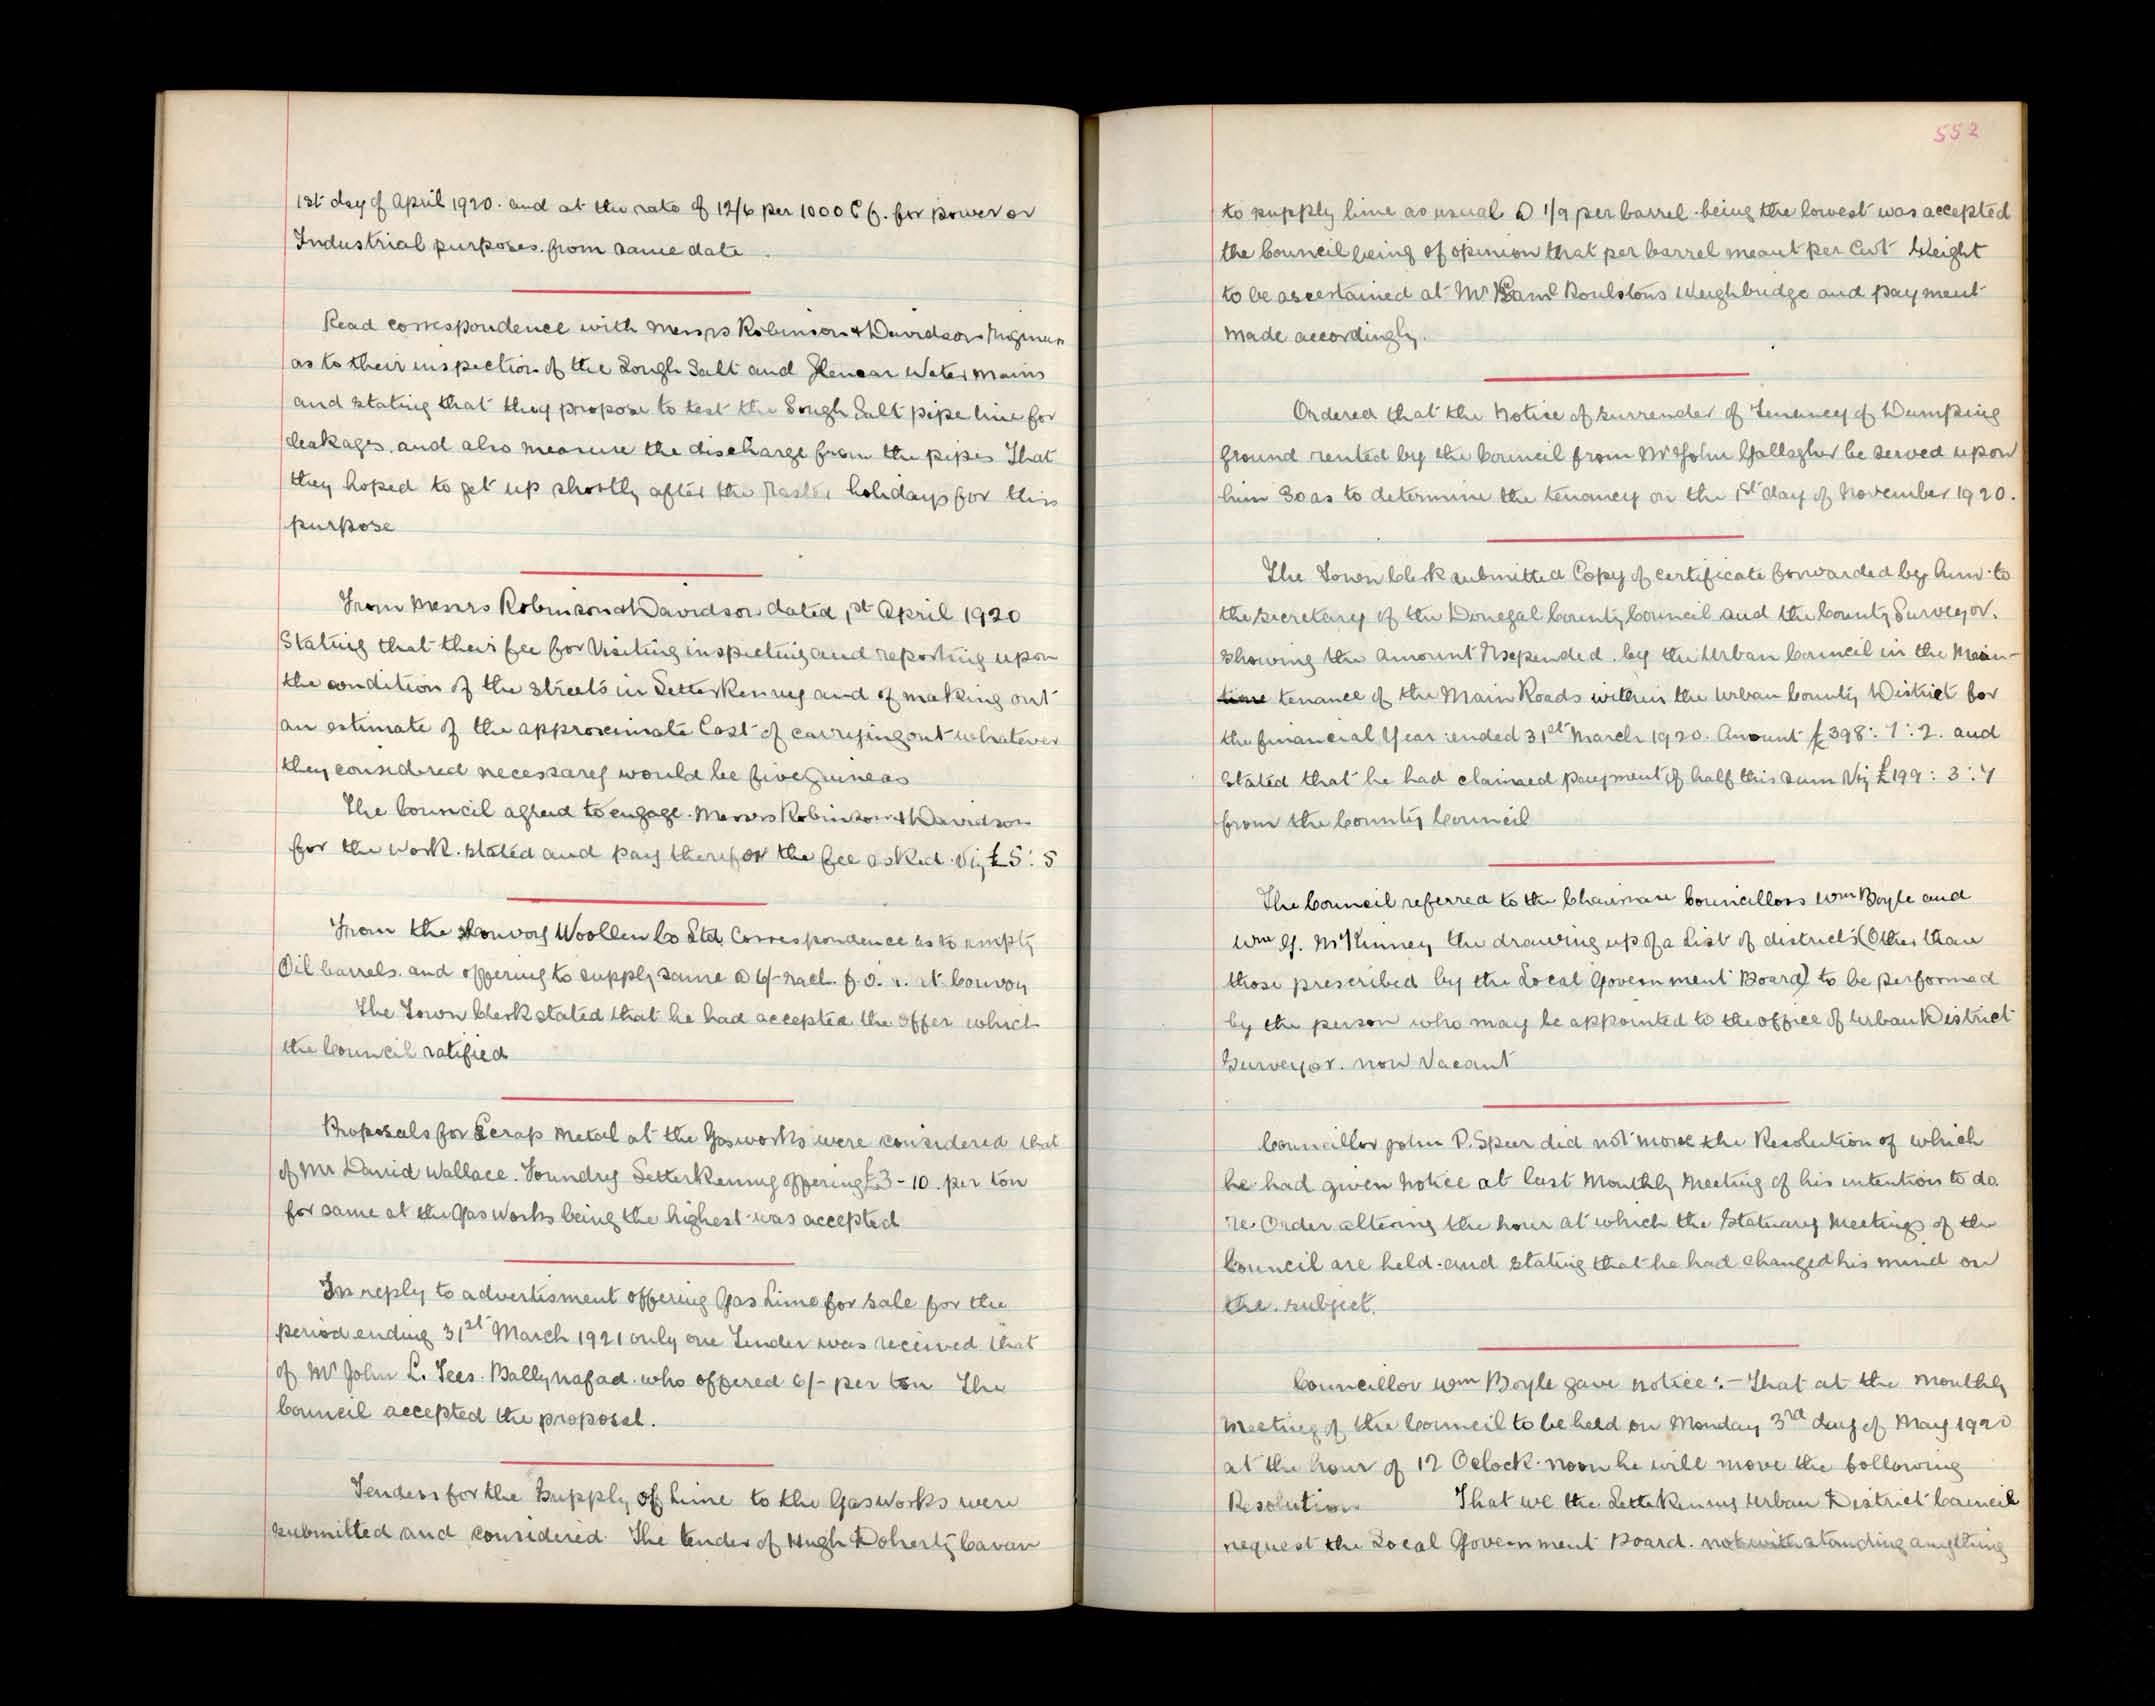 1st day of April 1920. and at the rate of 12/6 per 1000 C f. for power or
Industrial purposes. from same date.
Read correspondence with Messrs Robinson & Davidson
as to their inspection of the Lough Salt and Glencar Water Mains
and stating that they propose to test the Lough Salt pipe line for
leakages. and also measure the discharge from the pipes That
they hoped to get up shortly after the Easter holidays for this
purpose
From Messrs Robinson & Davidson dated 1st April 1920
Stating that their fee for Visiting inspecting and reporting upon
the condition of the streets in Letterkenny and of making out
an estimate of the approximate Cost of carrying out whatever
they considered necessary would be five Guineas
The Council agreed to engage. Messrs Robinson & Davidson
for the work. stated and pay therefor the fee asked. Viz £5 : 5
From the Convoy Woollen Co Ltd. Correspondence as to empty
Oil barrels. and offering to supply same @ 6/- each. f. o. r. at Convoy
The Town Clerk stated that he had accepted the offer which
the Council ratified
Proposals for Scrap Metal at the Gasworks were considered that
of Mr David Wallace. Foundry Letterkenny offering £3 - 10. per ton
for same at the Gas Works being the highest was accepted
In reply to advertisment offering Gas Lime for Sale for the
period ending 31st March 1921 only one Tender was received that
of Mr John L. Tees. Ballynafad. who offered 6/- per ton The
Council accepted the proposal.
Tenders for the Supply of Lime to the Gas Works were
submitted and considered. The tender of Hugh Doherty Cavan
552
to supply lime as usual @ 1/9 per barrel. being the lowest was accepted
the Council being of opinion that per barrel meant per Cwt Weight
to be ascertained at Mr Saml Roulstons Weighbridge and payment
made accordingly.
Ordered that the Notice of surrender of Tenancy of Dumping
Ground rented by the Council from Mr John Gallagher be served upon
him so as to determine the tenancy on the 1st day of November 1920.
The Town Clerk submitted Copy of certificate forwarded by him to
the secretary of the Donegal County Council and the County Surveyor.
showing the Amount Expended. by the Urban Council in the Main-
tenance of the Main Roads within the Urban County District for
the financial Year ended 31st March 1920. Amount £398 : 7 : 2. and
stated that he had claimed payment of half this sum Viz £199 : 3 : 7
from the County Council
The Council referred to the Chairman Councillors Wm Boyle and
Wm G. McKinney the drawing up of a List of districts (Other than
those prescribed by the Local Government Board) to be performed
by the person who may be appointed to the office of Urban District
Surveyor. now Vacant
Councillor John P. Speer did not move the Resolution of which
he had given Notice at last Monthly Meeting of his intention to do.
re. Order altering the hour at which the Statuary Meetings of the
Council are held. and stating that he had changed his mind on
the subject.
Councillor Wm Boyle gave notice :- That at the Monthly
Meeting of the Council to be held on Monday 3rd day of May 1920
at the hour of 12 Oclock. noon he will move the following
Resolution That we the Letterkenny Urban District Council
request the Local Government Board. notwithstanding anything